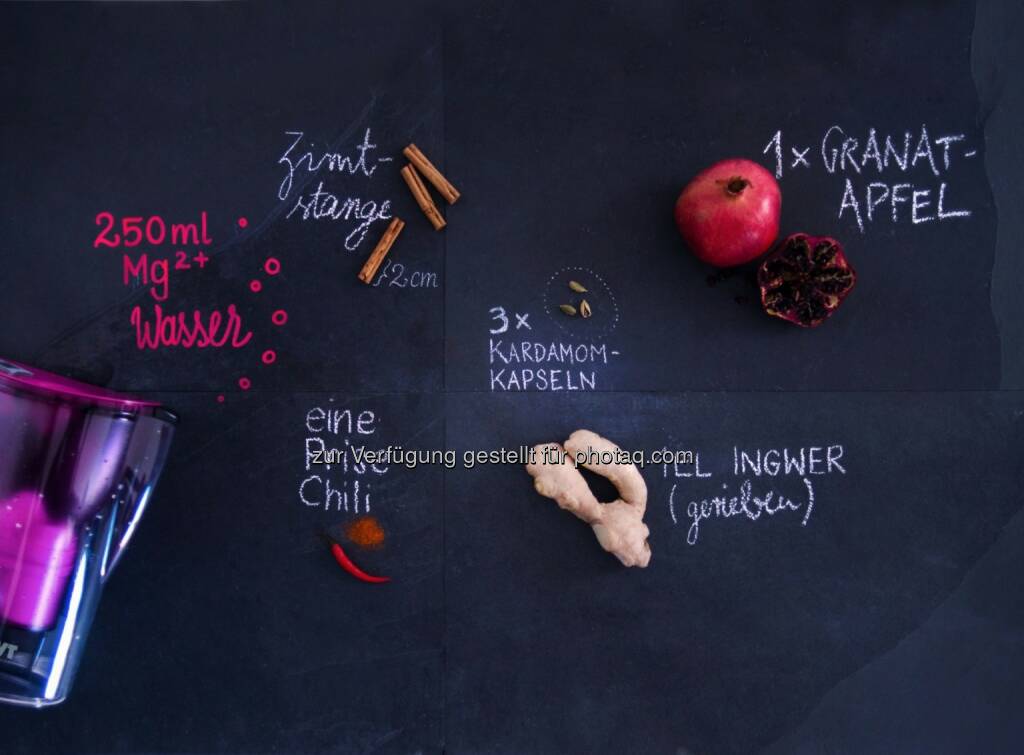 Zimt-
stange
}2cm
1x GRANAT-
APFEL
250ml
Mg²⁺
Wasser
3x
KARDAMOM-
KAPSELN
eine
Prise
Chili
zur Verfügung gestellt für photaq.com
INGWER
(gerieben)